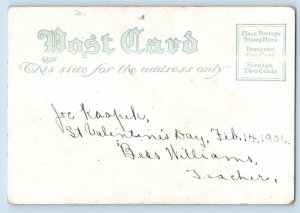 Post Card
This side for the address only
Place Postage
Stamp Here
Domestic
One Cent
Foreign
Two Cents
Joe
St Valentine's Day, Feb. 14, 1901.
Bess Williams,
Teacher,